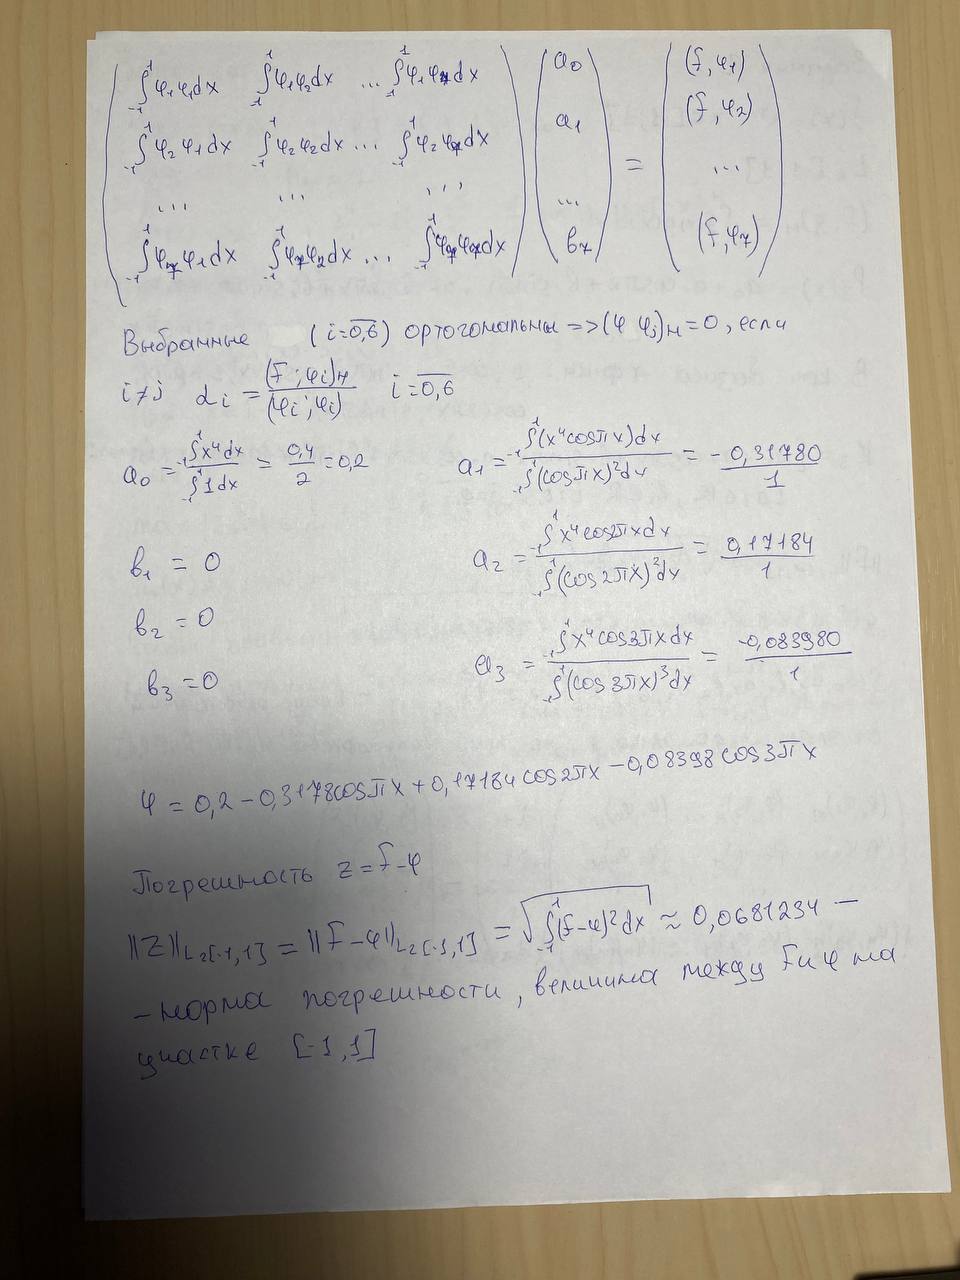 ∫₋₁¹φ₁φ₁dx ∫₋₁¹φ₁φ₂dx ... ∫₋₁¹φ₁φ₇dx a₀ (f,φ₁)
∫₋₁¹φ₂φ₁dx ∫₋₁¹φ₂φ₂dx ... ∫₋₁¹φ₂φ₇dx a₁ = (f,φ₂)
... ... ... ... ...
∫₋₁¹φ₇φ₁dx ∫₋₁¹φ₇φ₂dx ... ∫₋₁¹φ₇φ₇dx b₇ (f,φ₇)
Выбранные (i=0,6) ортогональны =>(φ φⱼ)ₕ=0, если
i≠j αᵢ = (f;φᵢ)ₕ/(φᵢ;φᵢ) i=0,6
a₀ = ∫₋₁¹x⁴dx/∫₋₁¹1dx = 0,4/2 = 0,2 a₁ = ∫₋₁¹(x⁴cosπx)dx/∫₋₁¹(cosπx)²dx = -0,31780/1
b₁ = 0 a₂ = ∫₋₁¹x⁴cos2πxdx/∫₋₁¹(cos2πx)²dx = 0,17184/1
b₂ = 0
b₃ = 0 a₃ = ∫₋₁¹x⁴cos3πxdx/∫₋₁¹(cos3πx)³dx = -0,083980/1
φ = 0,2-0,3178cosπx+0,17184cos2πx-0,08398cos3πx
Погрешность z=f-φ
||z||L₂[-1,1] = ||f-φ||L₂[-1,1] = √∫₋₁¹(f-φ)²dx ≈ 0,0681234 —
- норма погрешности, величина между f и φ на
участке [-1,1]